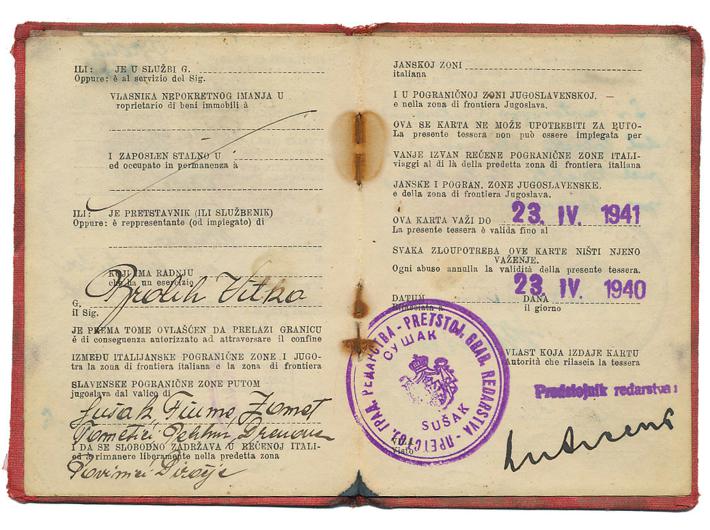 ILI: JE U SLUŽBI G.
Oppure: è al servizio del Sig.
VLASNIKA NEPOKRETNOG IMANJA U
roprietario di beni immobili à
I ZAPOSLEN STALNO U
ed occupato in permanenza à
ILI: JE PRETSTAVNIK (ILI SLUŽBENIK)
Oppure: è reppresentante (od impiegato) di
KOJI IMA RADNJU
che ha un esercizio
G.
il Sig.
JE PREMA TOME OVLAŠĆEN DA PRELAZI GRANICU
é di conseguenza autorizzato ad attraversare il confine
IZMEĐU ITALIJANSKE POGRANIČNE ZONE I JUGO-
tra la zona di frontiera italiana e la zona di frontiera
SLAVENSKE POGRANIČNE ZONE PUTOM
jugoslava dal valico di
Sušak, Fiume, Zamet
I DA SE SLOBODNO ZADRŽAVA U REČENOJ ITALI-
ed a rimanere liberamente nella predetta zona
JANSKOJ ZONI
italiana
I U POGRANIČNOJ ZONI JUGOSLAVENSKOJ. —
e nella zona di frontiera Jugoslava.
OVA SE KARTA NE MOŽE UPOTREBITI ZA PUTO-
La presente tessera non può essere impiegata per
VANJE IZVAN REČENE POGRANIČNE ZONE ITALI-
viaggi al di là della predetta zona di frontiera italiana
JANSKE I POGRAN. ZONE JUGOSLAVENSKE.
e della zona di frontiera Jugoslava.
OVA KARTA VAŽI DO 23. IV. 1941
La presente tessera è valida fino al
SVAKA ZLOUPOTREBA OVE KARTE NIŠTI NJENO
VAŽENJE.
Ogni abuso annulla la validità della presente tessera.
23. IV. 1940
DATUM DANA
il giorno
VLAST KOJA IZDAJE KARTU
Autorità che rilascia la tessera
PRETSTOJ. GRAD. REDARSTVA
СУШАК
SUŠAK
Predstojnik redarstva: